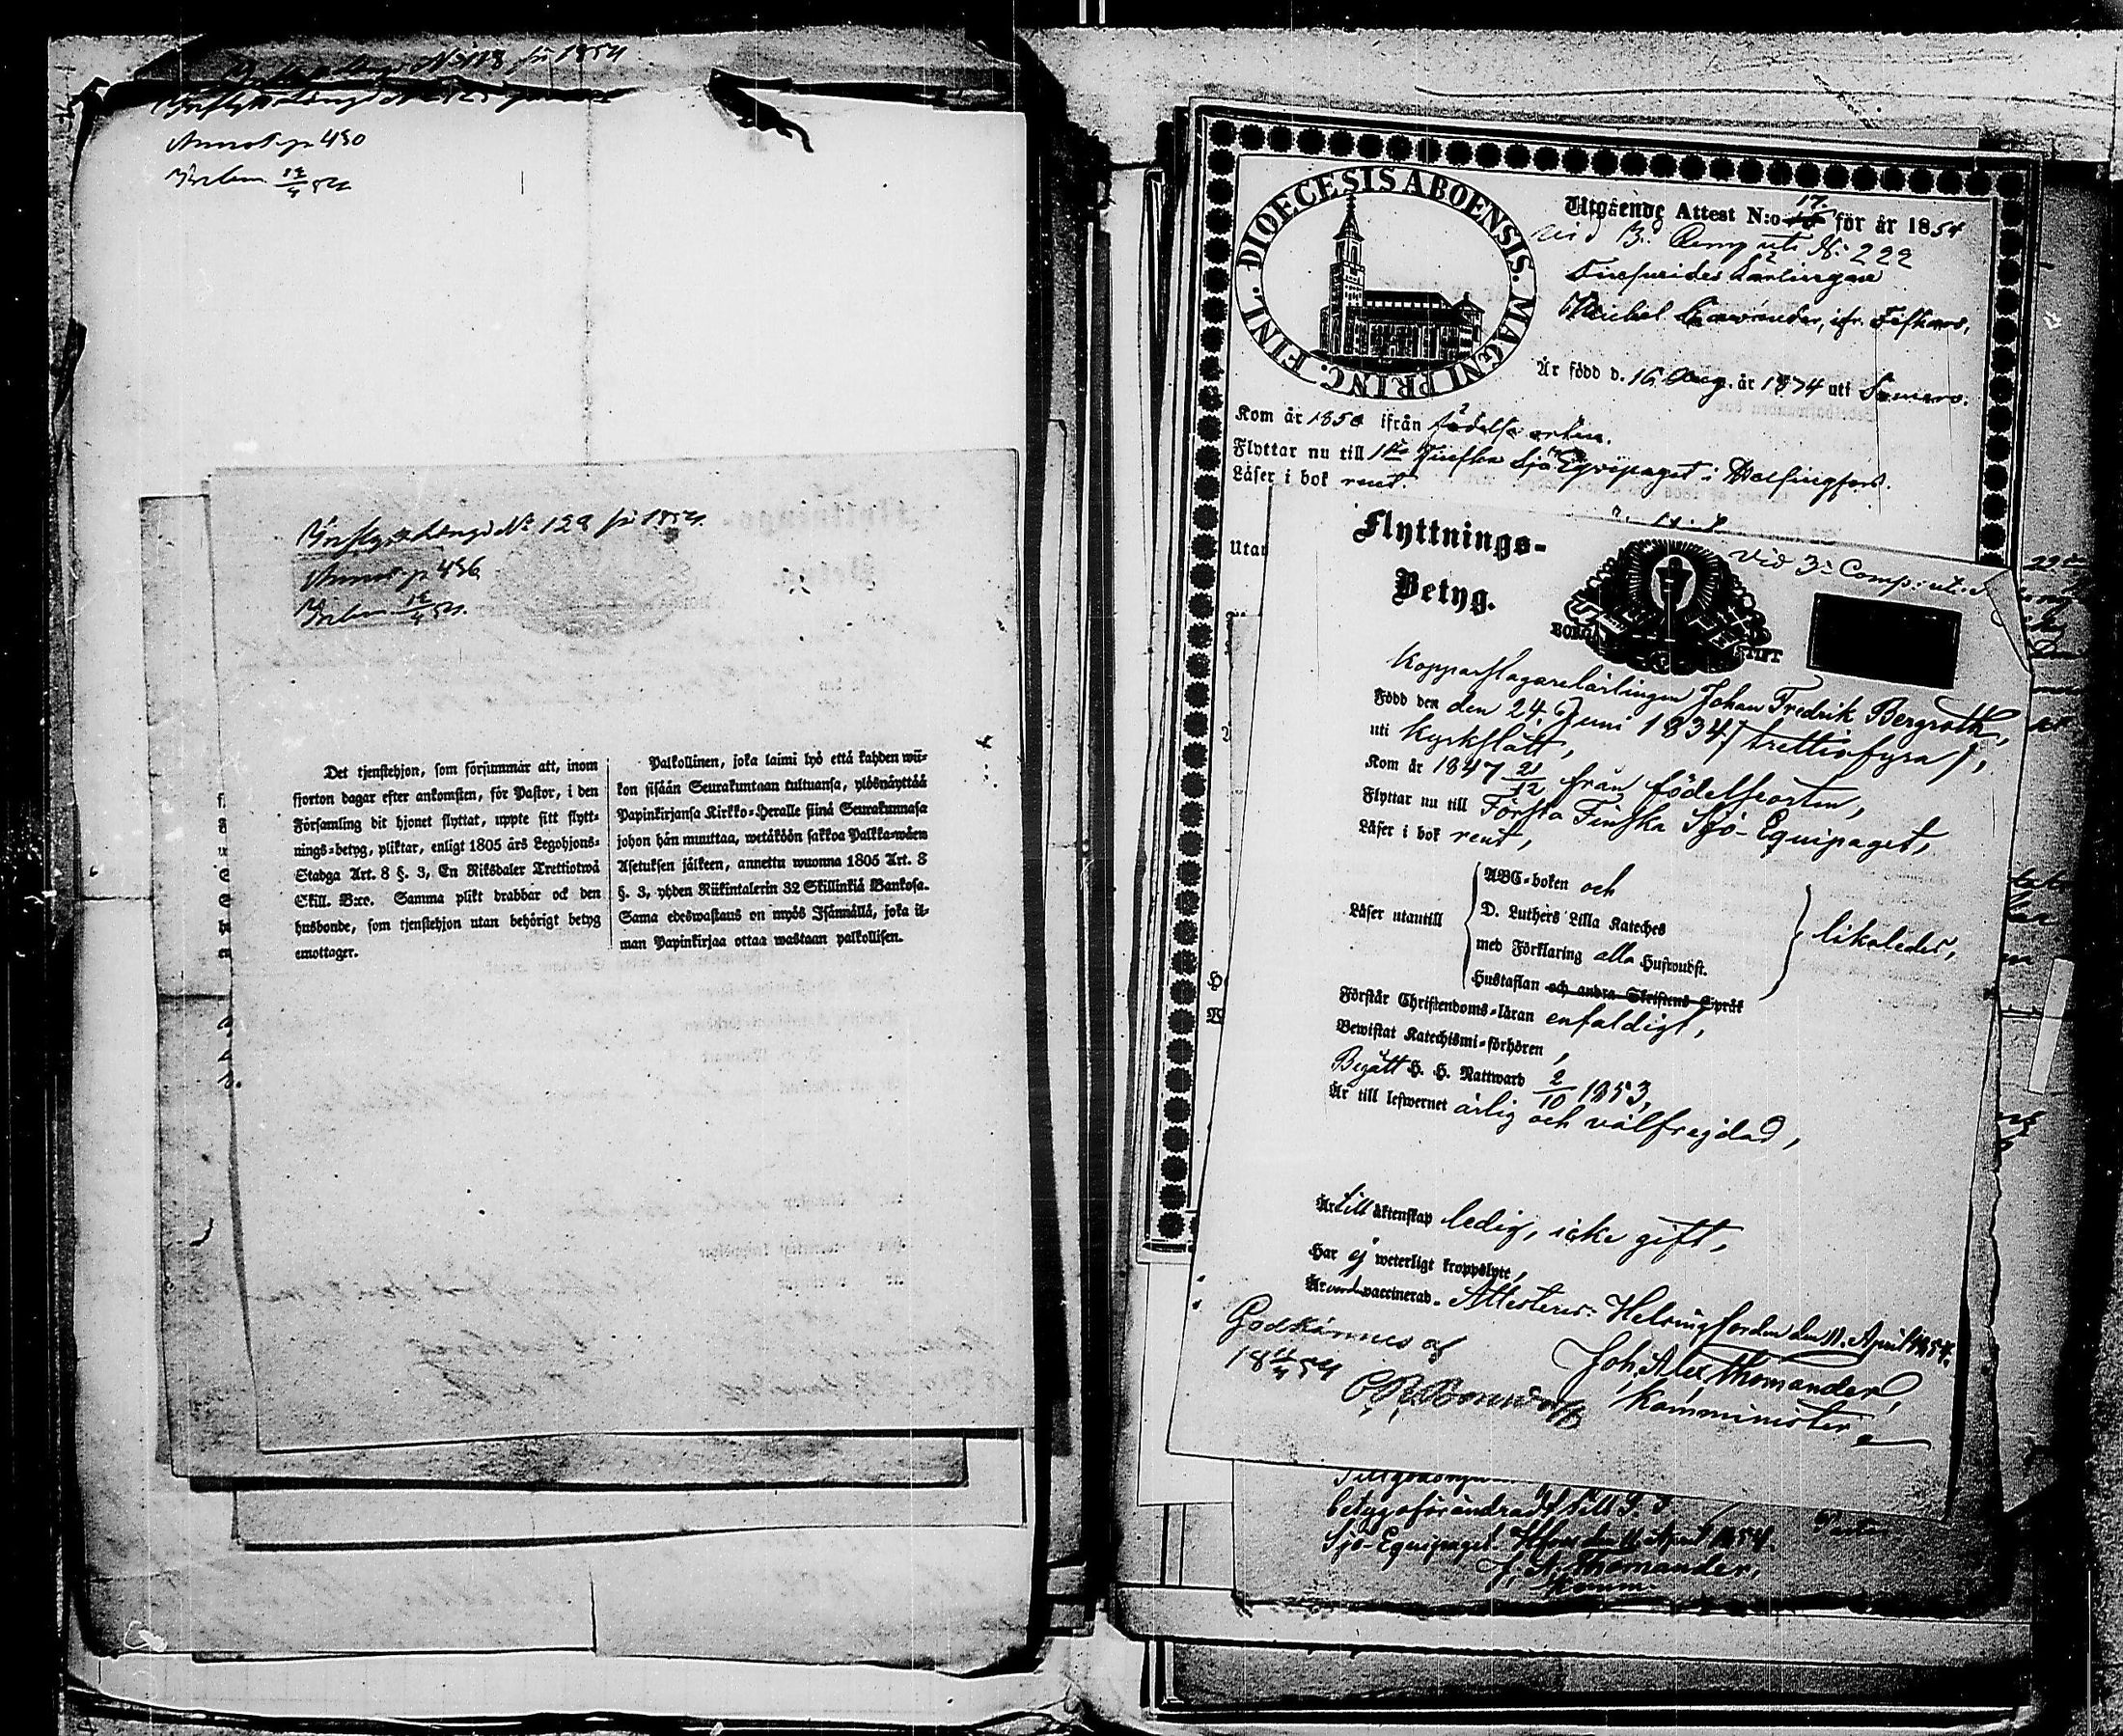 N:o 118 för 1854
Annot. p 430
Inflyttn. Längd N:o 128 för 1854.
Annot. p 436
Det tjenstehjon, som försummar att, inom
fjorton dagar efter ankomsten, för Pastor, i den
Församling dit hjonet flyttat, uppte sitt flytt-
nings-betyg, pliktar, enligt 1805 års Legohjons-
Stadga Art. 8 §. 3, En Riksdaler Trettiotwå
Skill. B:co. Samma plikt drabbar ock den
husbonde, som tjenstehjon utan behörigt betyg
emottager.
Palkollinen, joka laimi lyö että kahden wii-
kon sisään Seurakuntaan tultuansa, ylösnäyttää
Papinkirjansa Kirkko-Herralle siinä Seurakunnasa
johon hän muuttaa, wetäköön sakkoa Palkka-wäen
Asetuksen jälkeen, annettu wuonna 1805 Art. 8
§. 3, yhden Riikintalerin 32 Skillinkiä Bankosa.
Sama edeswastaus on myös Isännällä, joka il-
man Papinkirjaa ottaa wastaan palkollisen.
DIOECESIS ABOENSIS. MAGNI PRINC. FINL.
Utgående Attest N:o 17. för år 1854
vid 3. Comp uti N: 222
Är född d. 16 Aug. år 1834 uti Somero.
Kom år 1850 ifrån födelse orten.
Flyttar nu till 1sta Finska Sjö Equipaget i Helsingfors.
Läser i bok rent.
Utan
Flyttnings-
Betyg.
BORGÅ STIFT
vid 3e Comp: ut.
Kopparslagarelärlingen Johan Fredrik Bergroth,
Född den den 24 Juni 1834 / trettiofyra /,
uti Kyrkslätt,
Kom år 1847 21/12 från födelseorten,
Flyttar nu till Första Finska Sjö-Equipaget,
Läser i bok rent,
Läser utantill
ABC-boken och
D. Luthers Lilla Kateches
med Förklaring alla Huswudst.
Hustaflan och andra Skriftens Språk
likaledes,
Förstår Christendoms-läran enfaldigt,
Bewistat Katechismi-förhören,
Begått H. H. Nattward 2/10 1853,
Är till lefwernet ärlig och välfrejdad,
Är till äktenskap ledig, icke gift,
Har ej weterligt kroppslyte,
Är vaccinerad. Attesteras. Helsingfors den 11. April 1854.
Joh. Alex Thomander,
Komminister
Godkännes af
18 11/4 54
betygsförändradt till 1. F
Sjö-Equipaget. Hfors den 11 April 1854.
J. A. Thomander,
Komm.